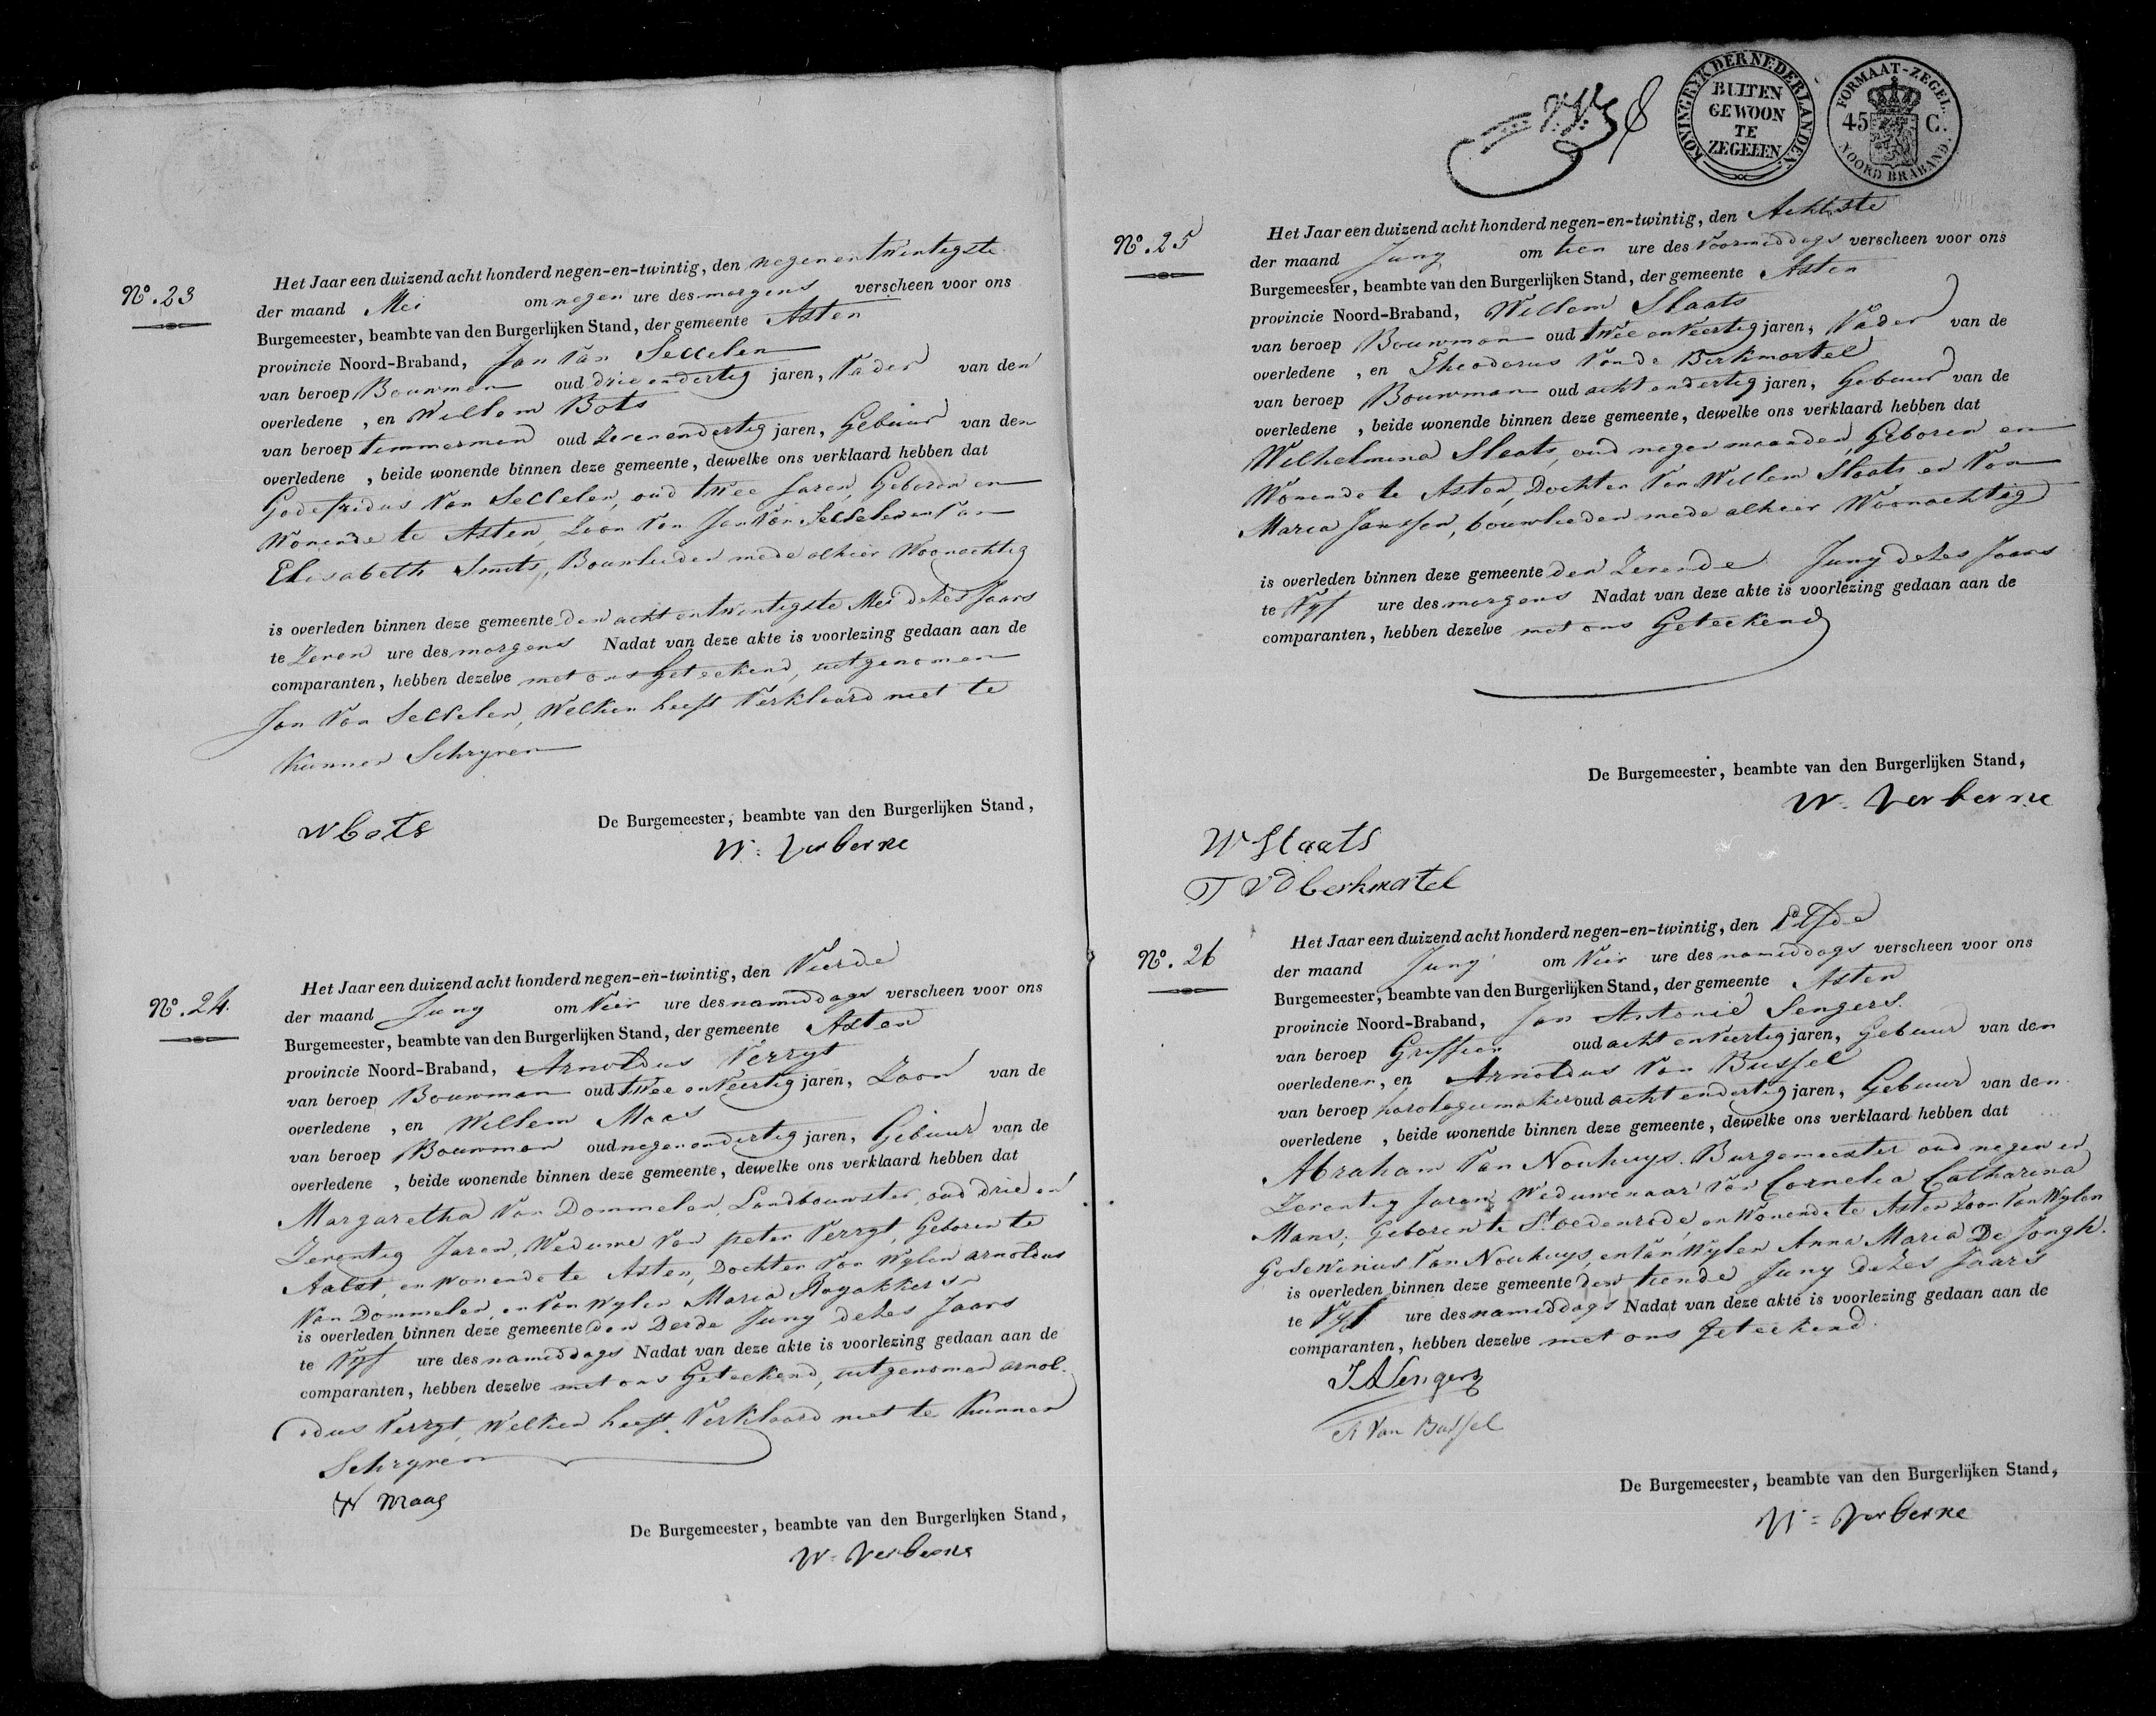 Nº. 23
Het Jaar een duizend acht honderd negen-en-twintig, den negenentwintigste
der maand Mei om negen ure des morgens verscheen voor ons
Burgemeester, beambte van den Burgerlijken Stand, der gemeente Asten
provincie Noord-Braband, Jan Van
van beroep Bouwman oud drie endertig jaren, Vader van den
overledene , en Willem Bots
van beroep timmerman oud Zevenendertig jaren, Gebuur van den
overledene , beide wonende binnen deze gemeente, dewelke ons verklaard hebben dat
Godefridus Van oud twee Jaren, Geboren en
Wonende te Asten, Zoon Van Jan Van en Van
Elisabeth Smits, Bouwlieden mede alhier Woonachtig
is overleden binnen deze gemeente den acht entwintigste Mei dezes Jaars
te Zeven ure des morgens Nadat van deze akte is voorlezing gedaan aan de
comparanten, hebben dezelve met ons Geteekend, uitgenomen
Jan Van Welken heeft Verklaard niet te
Kunnen Schryven
De Burgemeester, beambte van den Burgerlijken Stand,
W bots
W. Verberne
Nº. 24.
Het Jaar een duizend acht honderd negen-en-twintig, den Vierde
der maand Juny om Vier ure des namiddags verscheen voor ons
Burgemeester, beambte van den Burgerlijken Stand, der gemeente Asten
provincie Noord-Braband, Arnoldus Verryt
van beroep Bouwman oud twee enVeertig jaren, Zoon van de
overledene , en Willem Maas
van beroep Bouwman oud negenendertig jaren, Gebuur van de
overledene , beide wonende binnen deze gemeente, dewelke ons verklaard hebben dat
Margaretha Van Dommelen, Landbouwster, oud drie en
Zeventig Jaren, Weduwe Van peter Verryt, Geboren te
Aalst, en wonende te Asten, Dochter Van Wylen arnoldus
Van Dommelen, en Van Wylen Maria
is overleden binnen deze gemeente den Derde Juny dezes Jaars
te Vyf ure des namiddags Nadat van deze akte is voorlezing gedaan aan de
comparanten, hebben dezelve met ons Geteekend, uitgenomen arnol-
dus Verryt, Welken heeft Verklaard niet te Kunnen
Schryven
W Maas
De Burgemeester, beambte van den Burgerlijken Stand,
W. Verberne
KONINGRYK DER NEDERLANDEN
BUITEN
GEWOON
TE
ZEGELEN
FORMAAT-ZEGEL
45 C.
NOORD BRABAND.
Nº. 25
Het Jaar een duizend acht honderd negen-en-twintig, den Achtste
der maand Juny om tien ure des Voormiddags verscheen voor ons
Burgemeester, beambte van den Burgerlijken Stand, der gemeente Asten
provincie Noord-Braband, Willem Slaats
van beroep Bouwman oud twee enVeertig jaren, Vader van de
overledene , en Theodorus Van de Berkmortel
van beroep Bouwman oud acht endertig jaren, Gebuur van de
overledene , beide wonende binnen deze gemeente, dewelke ons verklaard hebben dat
Wilhelmina Slaats, oud negen maanden, Geboren en
Wonende te Asten, Dochter Van Willem Slaats en Van
Maria Janssen, bouwlieden mede alhier Woonachtig
is overleden binnen deze gemeente den Zevende Juny dezes Jaars
te Vyf ure des morgens Nadat van deze akte is voorlezing gedaan aan de
comparanten, hebben dezelve met ons Geteekend
De Burgemeester, beambte van den Burgerlijken Stand,
W. Verberne
W Slaats
T V D berkmortel
Nº. 26
Het Jaar een duizend acht honderd negen-en-twintig, den Elfde
der maand Juny om Vier ure des namiddags verscheen voor ons
Burgemeester, beambte van den Burgerlijken Stand, der gemeente Asten
provincie Noord-Braband, Jan Antonie Sengers.
van beroep Griffier oud acht enVeertig jaren, Gebuur van den
overledenen, en Arnoldus Van Bussel
van beroep horologiemaker oud acht endertig jaren, Gebuur van den
overledene , beide wonende binnen deze gemeente, dewelke ons verklaard hebben dat
Abraham Van Nouhuys. Burgemeester oud negen en
Zeventig Jaren, Weduwenaar Van Cornelia Catharina
Mans, Geboren te St oedenrode, en Wonende te Asten Zoon Van Wylen
Gosewinus Van Nouhuys, en Van Wylen Anna Maria De Jongh.
is overleden binnen deze gemeente den tiende Juny dezes Jaars
te Vyf ure des namiddags Nadat van deze akte is voorlezing gedaan aan de
comparanten, hebben dezelve met ons Geteekend.
J A Sengers
A Van Bussel
De Burgemeester, beambte van den Burgerlijken Stand,
W. Verberne